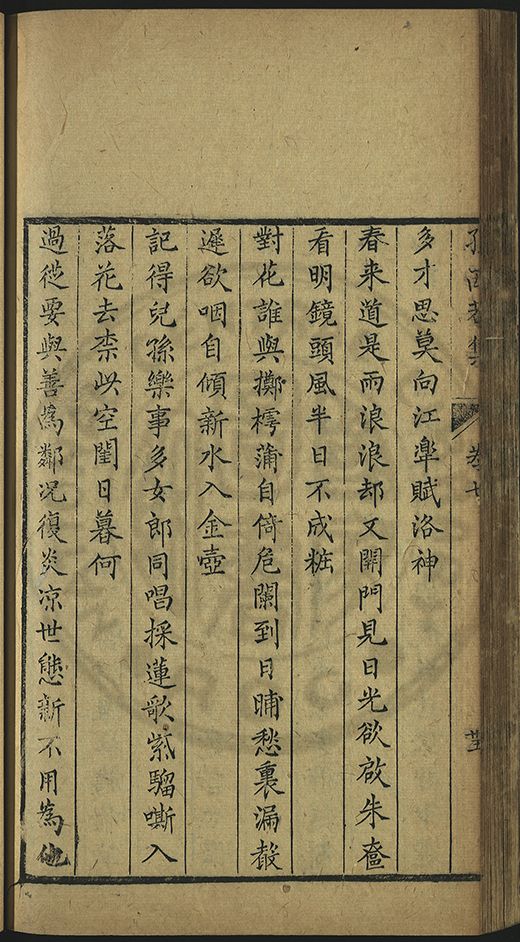 孫西菴集 卷七
多才思莫向江臯賦洛神
春来道是雨浪浪却又開門見日光欲啟朱奩
看明鏡頭風半日不成粧
對花誰與擲樗蒲自倚危闌到日晡愁裏漏聲
遲欲咽自傾新水入金壺
記得兒孫樂事多女郎同唱採蓮歌紫騮嘶入
落花去柰此空閨日暮何
過從要與善為鄰况復炎凉世態新不用為他